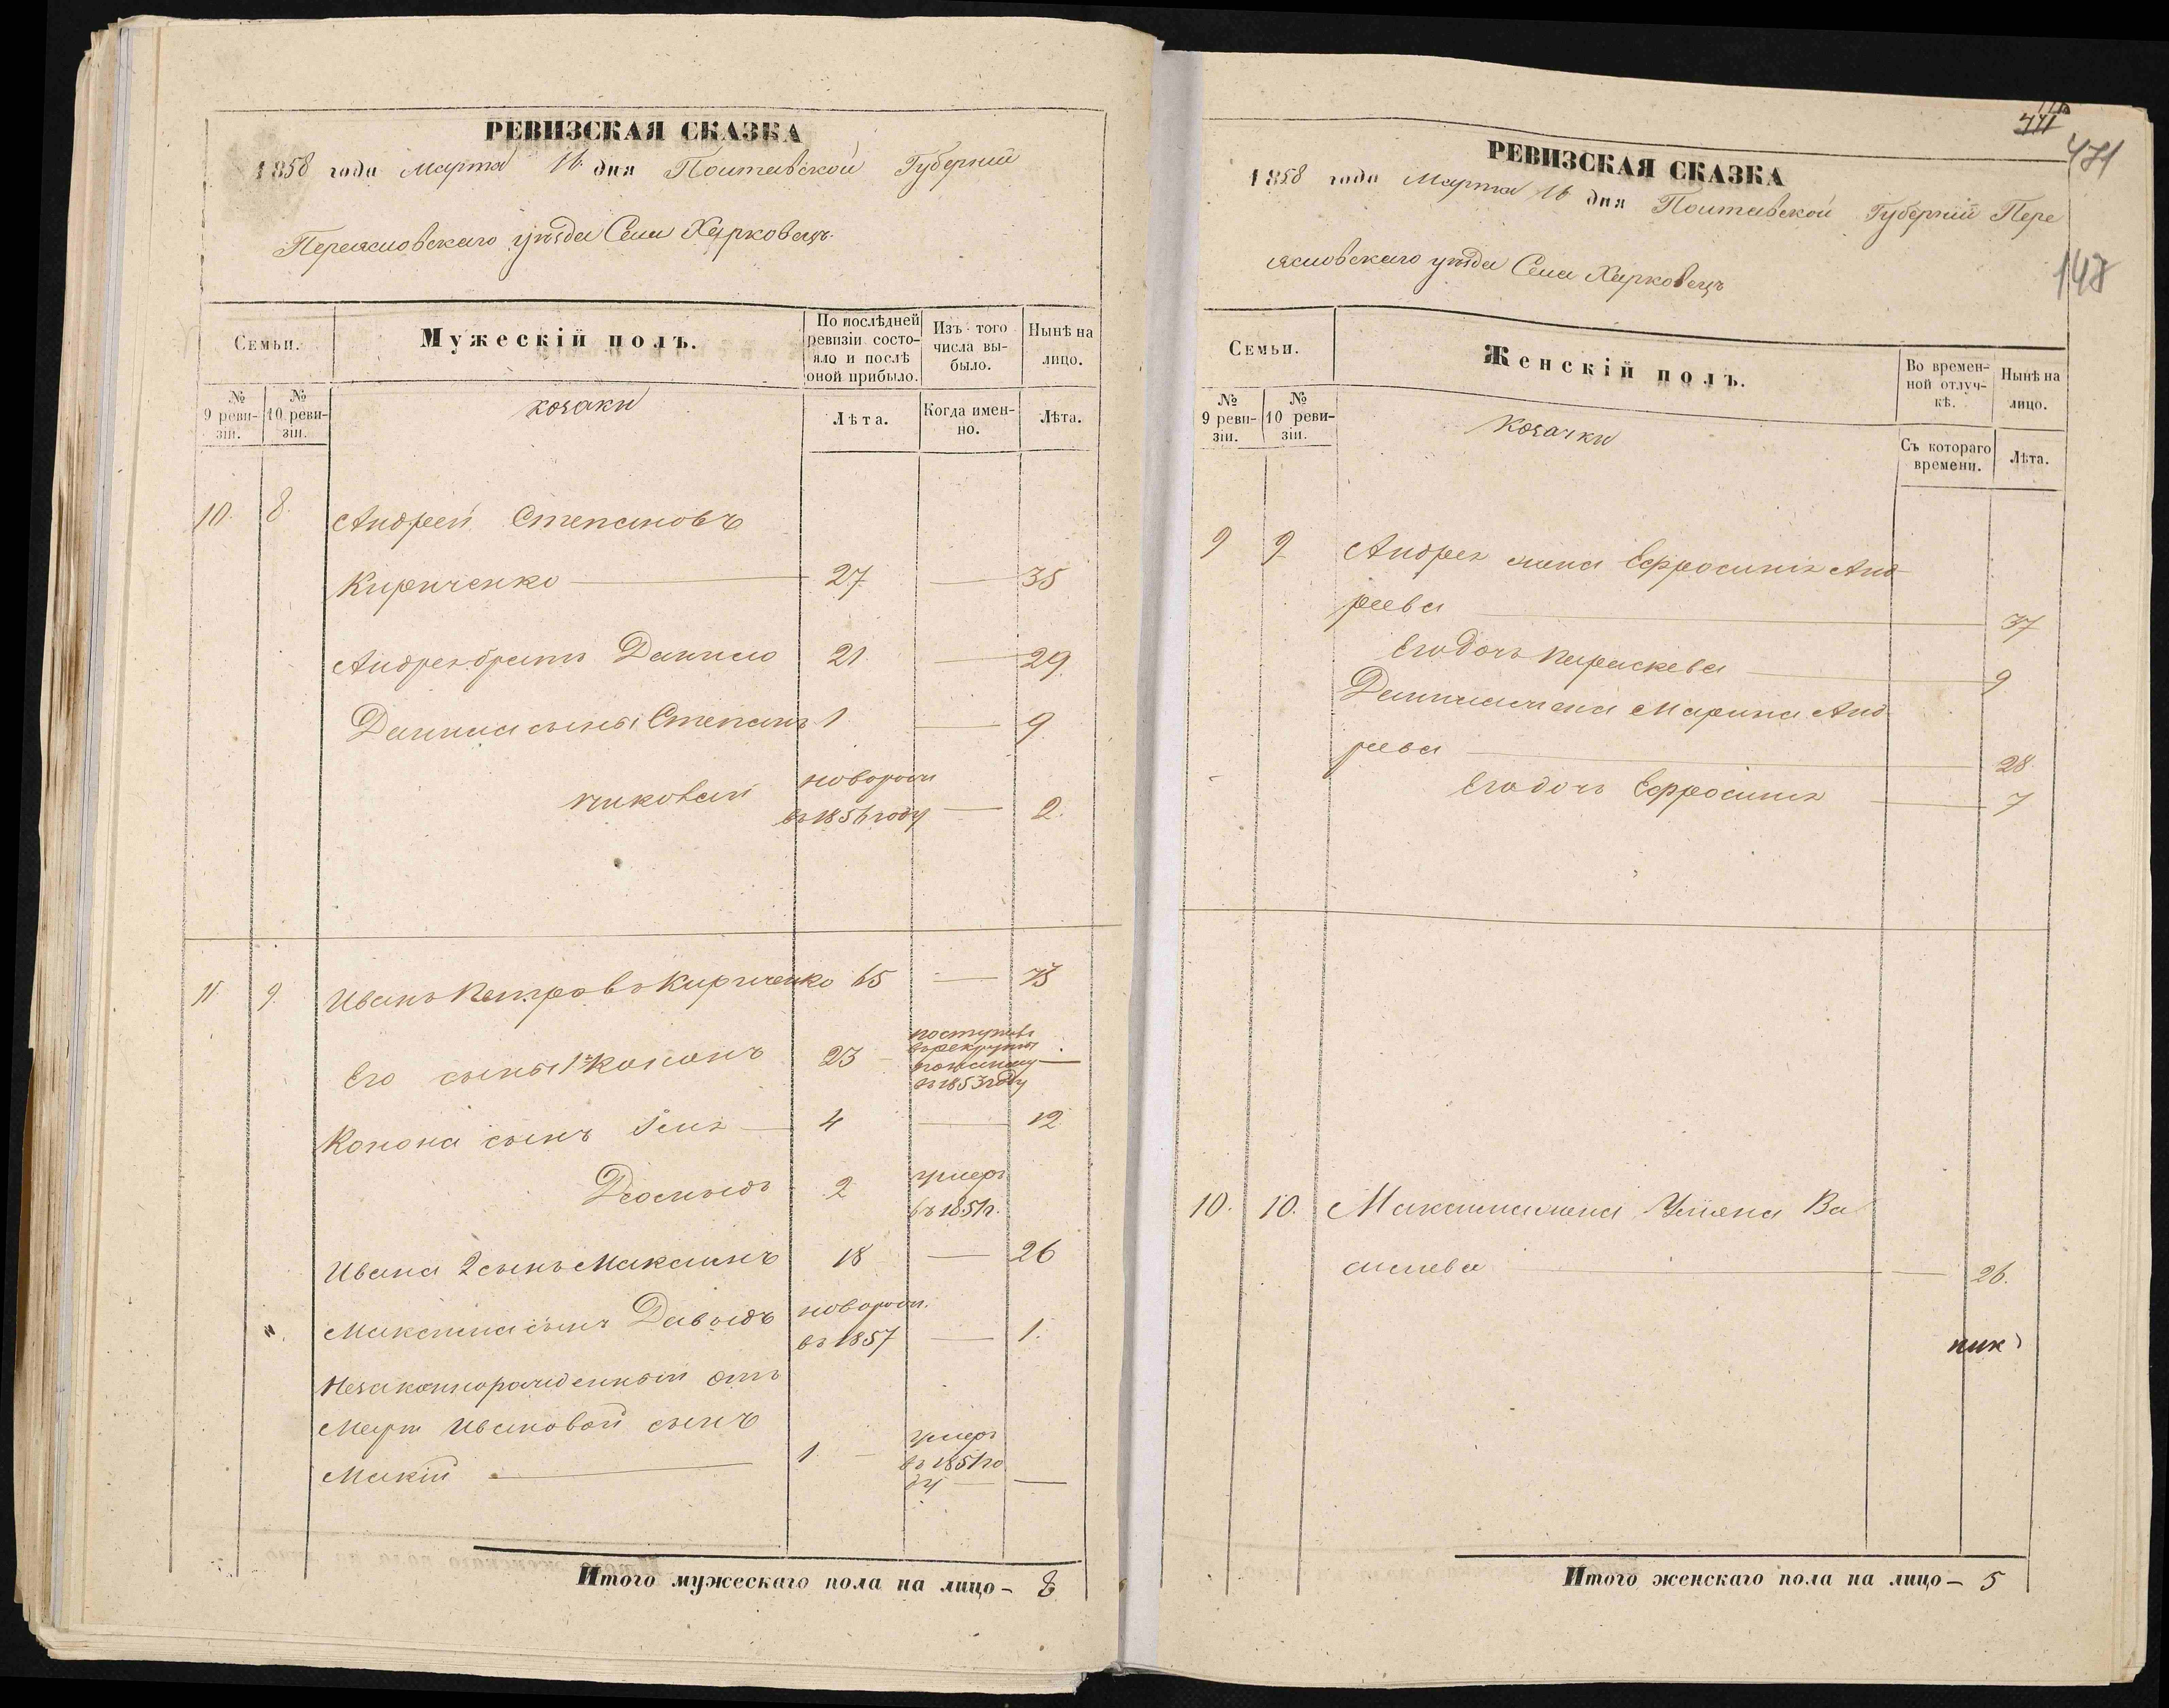 РЕВИЗСКАЯ СКАЗКА
1858 года Марта 16 дня Полтавской Губерніи
Переяславскаго уѣзда Села Харковецъ.
Семьи.
Мужескій полъ.
По послѣдней ревизіи состояло и послѣ оной прибыло.
Изъ того числа выбыло.
Нынѣ на лицо.
№ 9 ревизіи.
№ 10 ревизіи.
козаки
Лѣта.
Когда именно.
Лѣта.
10. 8. Андрей Степановъ
Кириченко 27 — 35
Андрея братъ Данило 21 — 29.
Данила сыны Степанъ 1 — 9
новорож
въ 1856 году — 2.
11. 9. Иванъ Петровъ Кириченко 65 — 73
Его сыны 1й Кононъ 23 — поступилъ
въ рекруты
въ 1853 году —
Конона сынъ Илія — 4 — 12
2 умеръ
въ 1851 г.
Ивана 2 сынъ Максимъ 18 — 26
Максима сынъ Давыдъ новорож.
въ 1857 — 1.
Незаконнорожденный отъ
Марѳ Ивановой сынъ
Макій — 1. — умеръ
въ 1851 го
ду — —
Итого мужескаго пола на лицо — 8
771
471
147
РЕВИЗСКАЯ СКАЗКА
1858 года Марта 16 дня Полтавской Губерніи Пере
яславскаго уѣзда Села Харковецъ
Семьи.
Женскій полъ.
Во временной отлучкѣ.
Нынѣ на лицо.
№ 9 ревизіи.
№ 10 ревизіи.
Козачки
Съ котораго времени.
Лѣта.
9 9 Андрея жена Ефросинія Анд
реева — 37
Его дочь Параскева — 9
Данила жена Марина Анд
реева — 28
Его дочь Ефросинія — 7
10. 10. Максима жена Уліяна Ва
силиева — 26.
Итого женскаго пола на лицо — 5